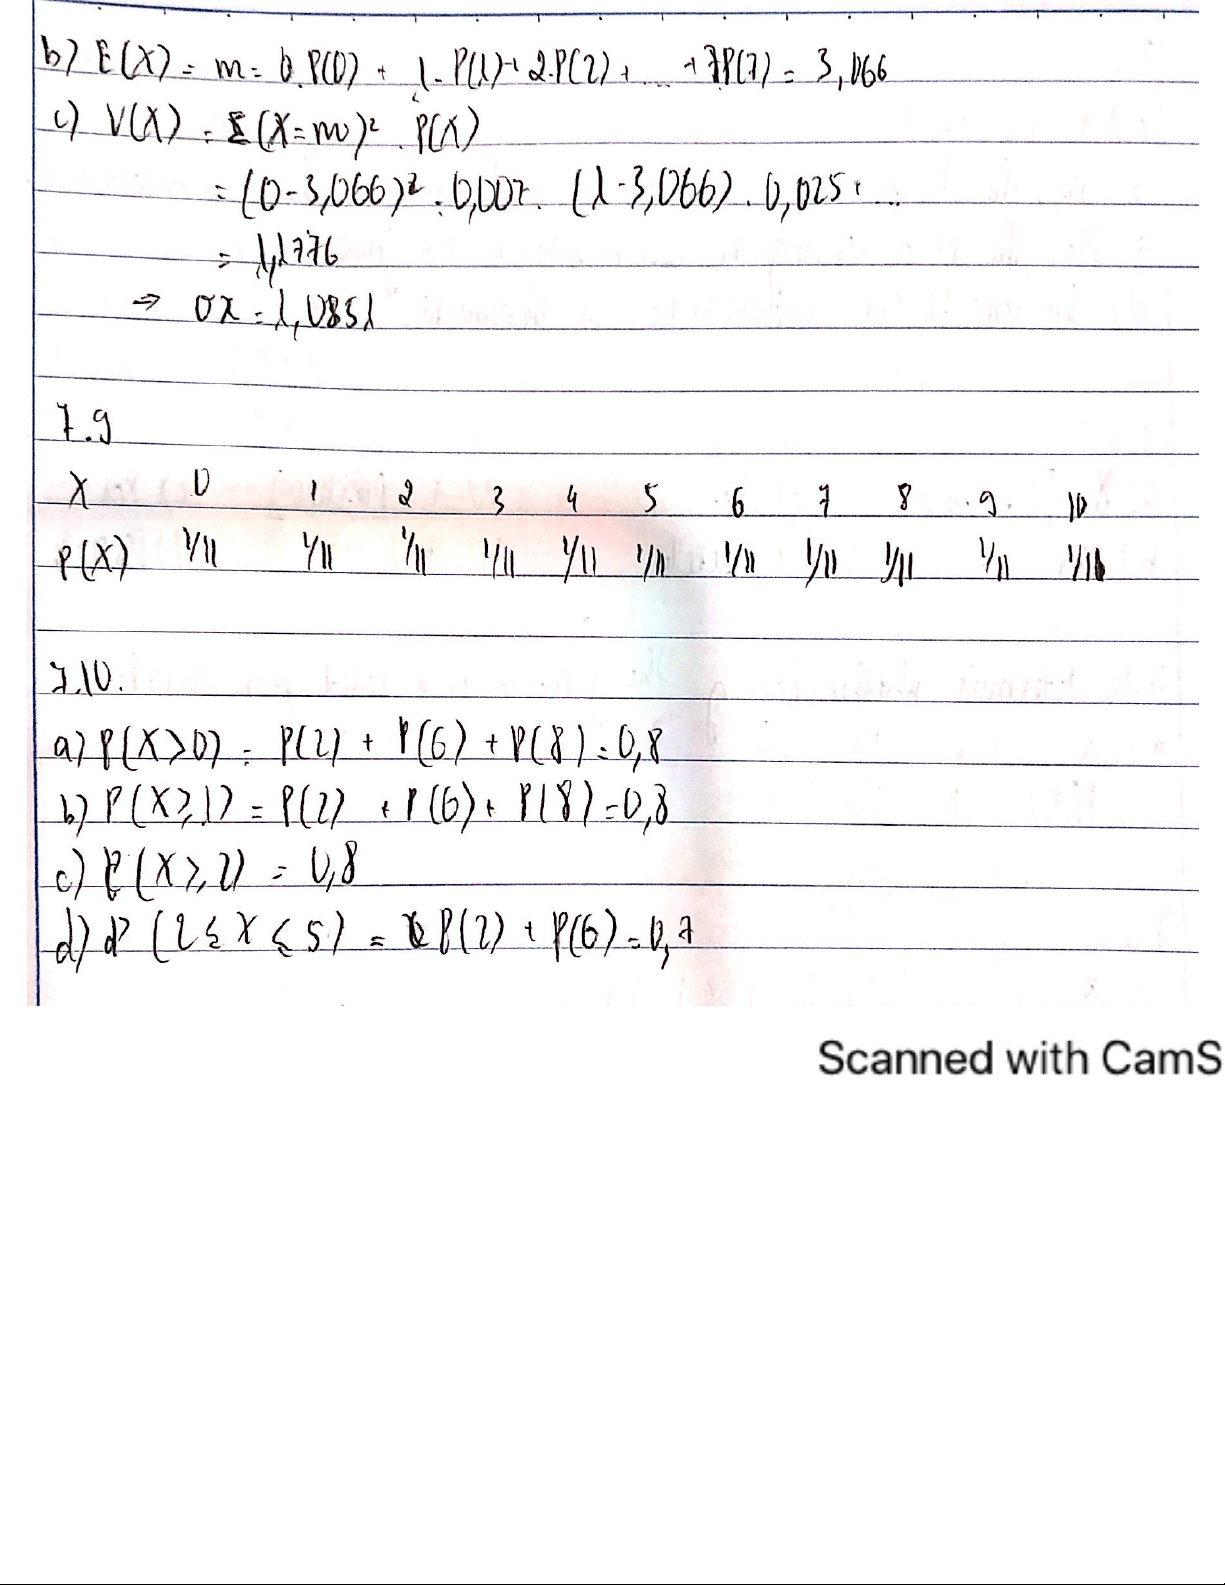 b) E(X) = m = 0.P(0) + 1.P(1) + 2.P(2) + ... + 7P(7) = 3,066
c) V(X) = Σ(X=m)² . P(X)
= (0-3,066)² . 0,007. (1-3,066) . 0,025 + ...
= 1,1776
⇒ σx = 1,0851
7.9
X 0 1 2 3 4 5 6 7 8 9 10
P(X) 1/11 1/11 1/11 1/11 1/11 1/11 1/11 1/11 1/11 1/11 1/11
7.10.
a) P(X>0) = P(2) + P(6) + P(8) = 0,8
b) P(X≥1) = P(2) + P(6) + P(8) = 0,8
c) P(X≥2) = 0,8
d) P (2≤X≤5) = P(2) + P(6) = 0,7
Scanned with CamS